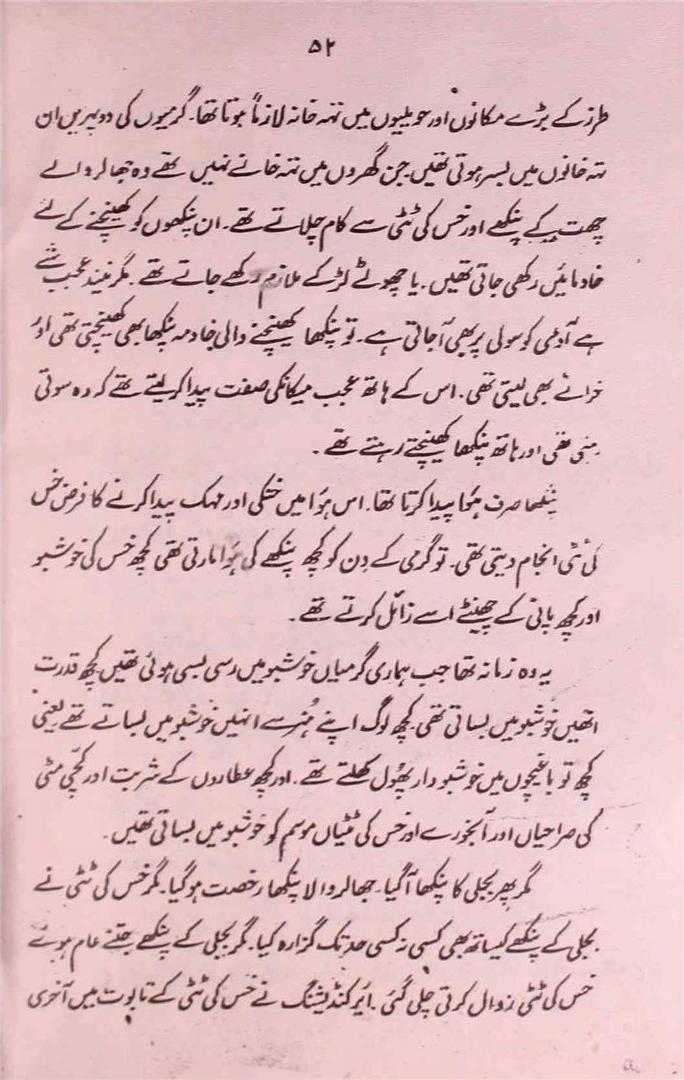 ۵۲
طرز کے بڑے مکانوں اور حویلیوں میں تہہ خانہ لازماً ہوتا تھا۔ گرمیوں کی دوپہریں ان
تہہ خانوں میں بسر ہوتی تھیں جن گھروں میں تہہ خانے نہیں تھے وہ جھالر والے
چھت کے پنکھے اور خس کی ٹٹی سے کام چلاتے تھے۔ ان پنکھوں کو کھینچنے کے لئے
خادمائیں رکھی جاتی تھیں۔ یا چھوٹے لڑکے ملازم رکھے جاتے تھے۔ مگر نیند عجب شے
ہے آدمی کو سولی پر بھی آجاتی ہے۔ تو پنکھا کھینچنے والی خادمہ پنکھا بھی کھینچتی تھی اور
خراٹے بھی لیتی تھی۔ اس کے ہاتھ عجب میکانکی صفت پیدا کر لیتے تھے کہ وہ سوتی
رہتی تھی اور ہاتھ پنکھا کھینچتے رہتے تھے۔
پنکھا صرف ہوا پیدا کرتا تھا۔ اس ہوا میں خنکی اور مہک پیدا کرنے کا فرض خس
کی ٹٹی انجام دیتی تھی۔ تو گرمی کے دن کو کچھ پنکھے کی ہوا مارتی تھی کچھ خس کی خوشبو
اور کچھ پانی کے چھینٹے اسے زائل کرتے تھے۔
یہ وہ زمانہ تھا جب ہماری گرمیاں خوشبو میں رسی بسی ہوئی تھیں کچھ قدرت
انھیں خوشبو میں بساتی تھی۔ کچھ لوگ اپنے ہنر سے انہیں خوشبو میں بساتے تھے یعنی
کچھ تو باغیچوں میں خوشبودار پھول کھلتے تھے۔ اور کچھ عطاروں کے شربت اور کچی مٹی
کی صراحیاں اور آبخورے اور خس کی ٹٹیاں موسم کو خوشبو میں بساتی تھیں۔
مگر پھر بجلی کا پنکھا آگیا۔ جھالر والا پنکھا رخصت ہو گیا۔ مگر خس کی ٹٹی نے
بجلی کے پنکھے کیساتھ بھی کسی نہ کسی حد تک گزارہ کیا۔ مگر بجلی کے پنکھے جتنے عام ہوئے
خس کی ٹٹی زوال کرتی چلی گئی۔ ایرکنڈیشنگ نے خس کی ٹٹی کے تابوت میں آخری